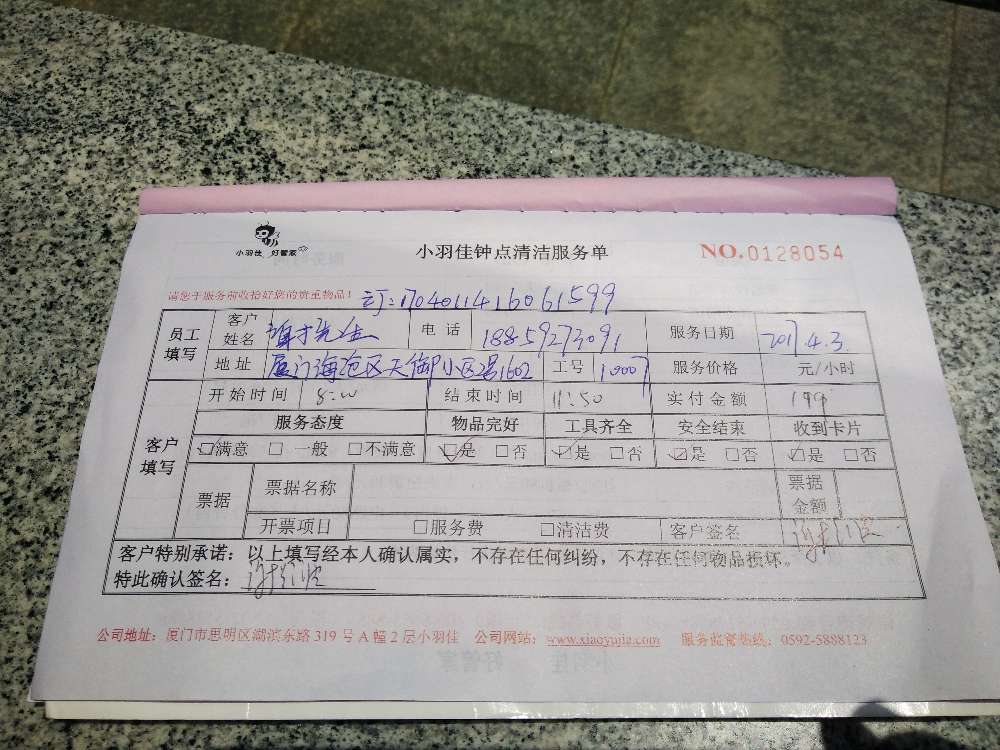 小羽佳 好管家
小羽佳钟点清洁服务单
NO.0128054
请您于服务前收拾好您的贵重物品！ 订:1704011416061599
员工填写 客户姓名 先生 电话 18859273091 服务日期 2017.4.3
地址 厦门海沧区天御小区2号1602 工号 10007 服务价格 元/小时
客户填写 开始时间 8:00 结束时间 11:50 实付金额 199
服务态度 物品完好 工具齐全 安全结束 收到卡片
☑满意 □ 一般 □不满意 ☑是 □否 ☑是 □否 ☑是 □否 ☑是 □否
票据 票据名称 票据金额
开票项目 □服务费 □清洁费 客户签名
客户特别承诺：以上填写经本人确认属实，不存在任何纠纷，不存在任何物品损坏。
特此确认签名：
公司地址：厦门市思明区湖滨东路 319 号 A 幢 2 层小羽佳 公司网站：www.xiaoyujia.com 服务监督热线：0592-5888123